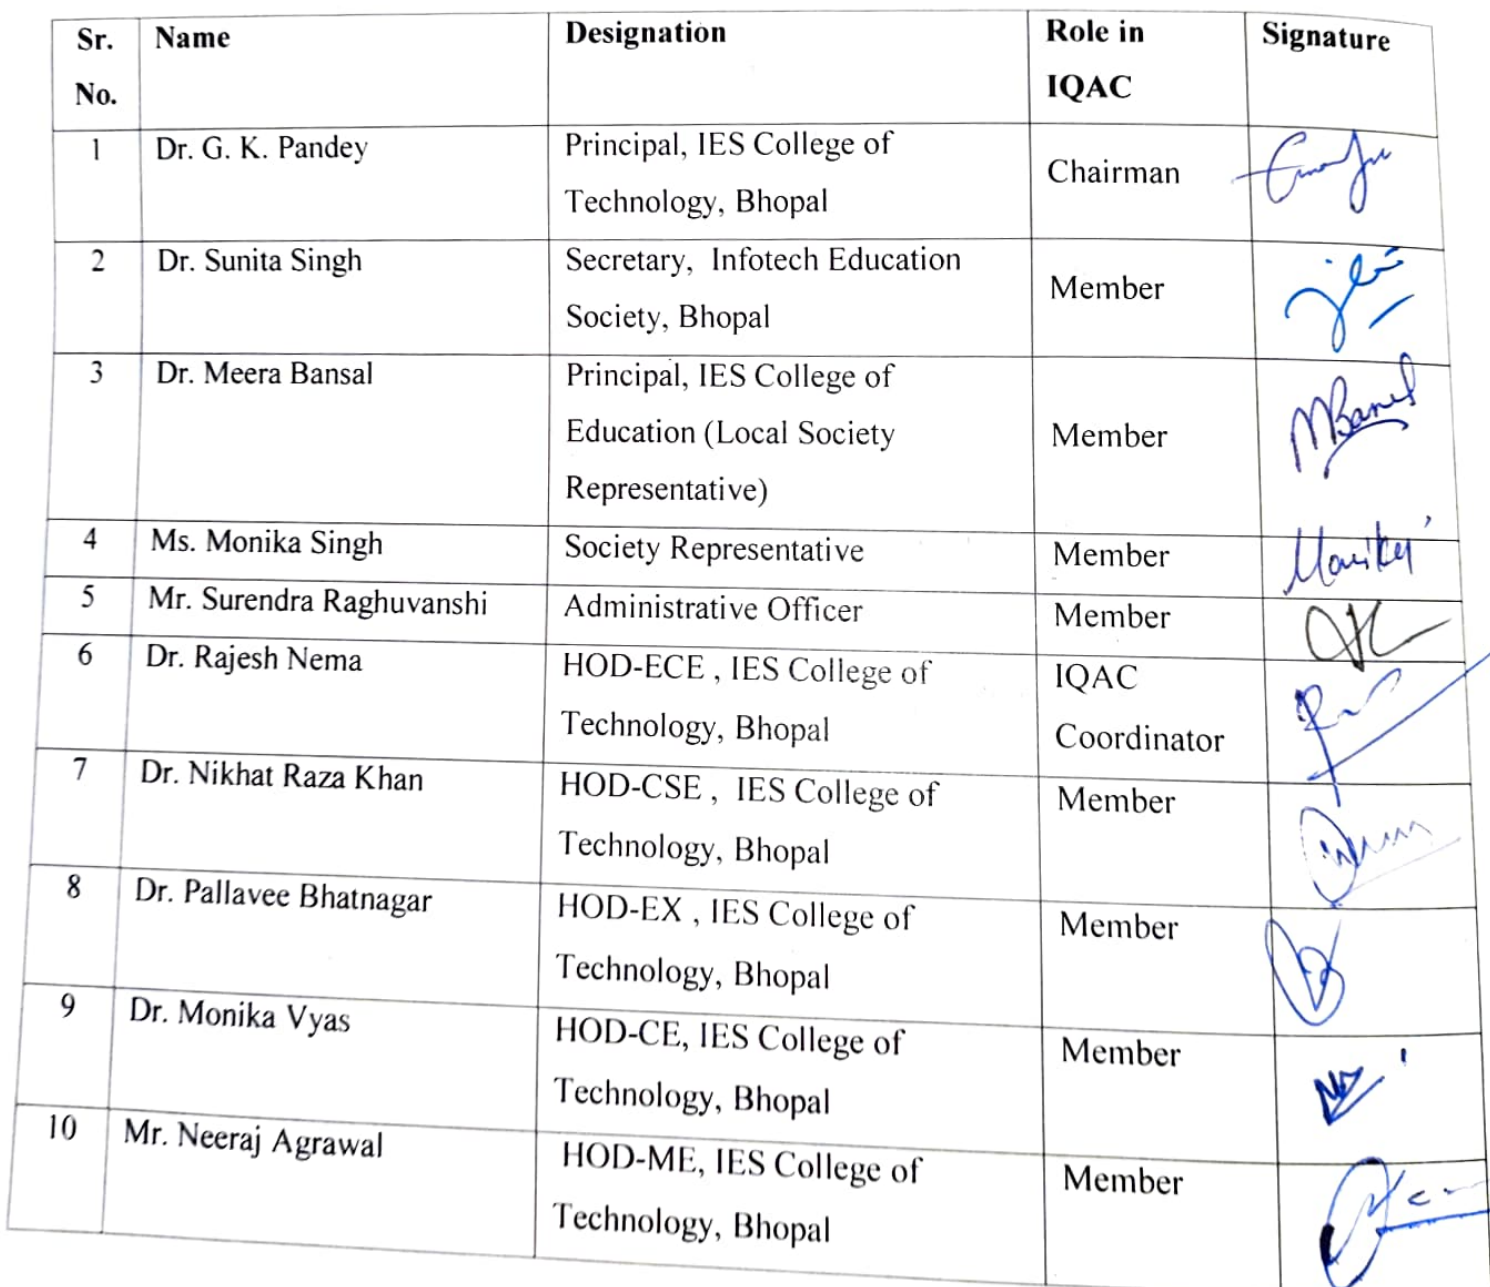 Sr. No. Name Designation Role in IQAC Signature
1 Dr. G. K. Pandey Principal, IES College of
Technology, Bhopal Chairman
2 Dr. Sunita Singh Secretary, Infotech Education
Society, Bhopal Member
3 Dr. Meera Bansal Principal, IES College of
Education (Local Society
Representative) Member MBansl
4 Ms. Monika Singh Society Representative Member
5 Mr. Surendra Raghuvanshi Administrative Officer Member
6 Dr. Rajesh Nema HOD-ECE , IES College of
Technology, Bhopal IQAC
Coordinator
7 Dr. Nikhat Raza Khan HOD-CSE , IES College of
Technology, Bhopal Member
8 Dr. Pallavee Bhatnagar HOD-EX , IES College of
Technology, Bhopal Member
9 Dr. Monika Vyas HOD-CE, IES College of
Technology, Bhopal Member
10 Mr. Neeraj Agrawal HOD-ME, IES College of
Technology, Bhopal Member